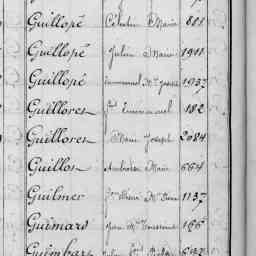 Guillopé Célestin Marie 811
Guillopé Julien Marie 1911
Guillopé Emmanuel Mie Joseph 1937
Guillores Jn Emmanuel 182
Guillores Marie Joseph 2084
Guillos Ambroise Marie 664
Guilmer Marie 1137
Guimard Jean Mie Toussaint 166
Guimbart